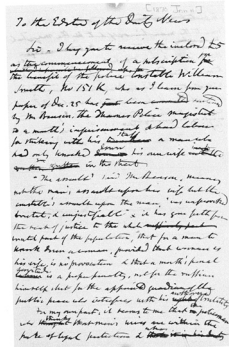 To the Editor of the Daily News
Sir - I beg you to receive the inclosed £5
as the commencement of a subscription for
the benefit of the police constable William
Smith, No 151 K, who as I learn from your
paper of Dec. 25 has just been
by Mr Benson, the Thames Police magistrate
to a month's imprisonment & hard labour
for striking with his staff a man who
had only knocked down his own wife
in the street.
"The assault" said Mr Benson, meaning
not the man's assault upon his wife but the
constable's assault upon the man, "was unprovoked
brutal, & unjustifiable" & it has gone forth from
the seat of justice to the
part of the population, that for a man to
knock down a woman, provided that woman is
his wife, is no provocation & that a month's
is a proper penalty, not for the ruffian
himself but for the guardian of the
public peace who interferes with his brutalities
For my own part, it seems to me that a policeman
who that men's wives are within the
pale of legal protection &